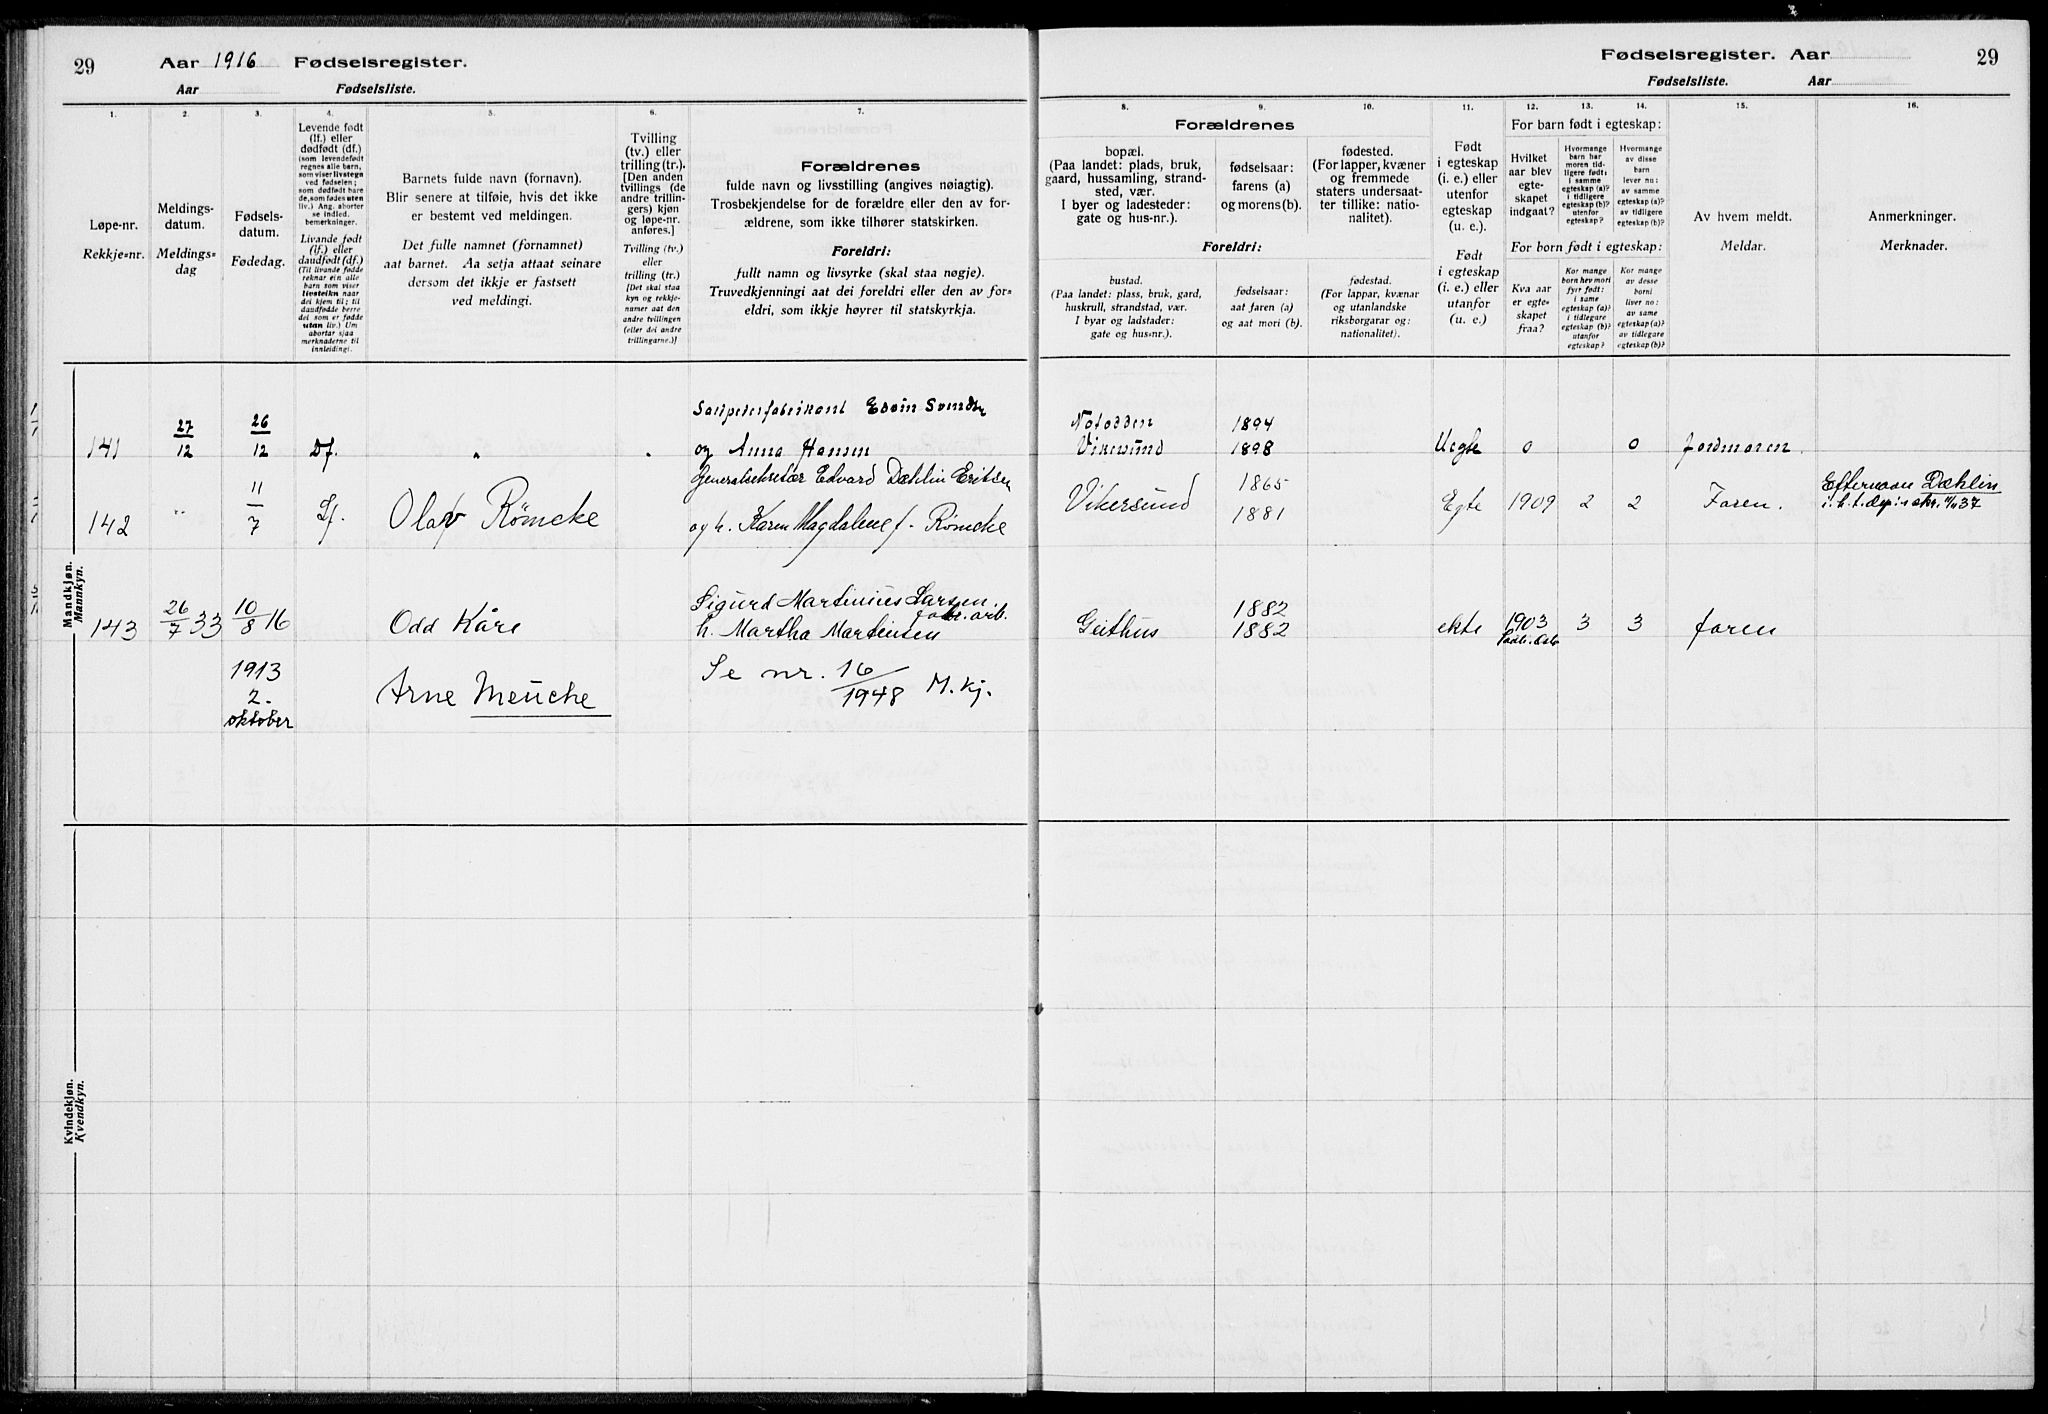 29
Aar 1916 Fødselsregister.
Aar Fødselsliste.
Fødselsregister. Aar
29
Fødselsliste. Aar
1.
Løpe-nr.
Rekkje=nr.
2.
Meldings-
datum.
Meldings=
dag
3.
Fødsels-
datum.
Fødedag.
4.
Levende født
(lf.) eller
dødfødt (df.)
(som levendefødt
regnes alle barn,
som viser livstegn
ved fødselen;
som dødfødt bare
de, som fødes uten
liv.) Ang. aborter
se indled.
bemerkninger.
Livande født
(lf.) eller
daudfødt (df.)
(Til livande fødde
reknar ein alle
barn som viser
livsteikn naar
dei kjem til; til
daudfødde berre
dei som er fødde
utan liv.) Um
abortar sjaa
merknaderne til
innleidingi.
5.
Barnets fulde navn (fornavn).
Blir senere at tilføie, hvis det ikke
er bestemt ved meldingen.
Det fulle namnet (fornamnet)
aat barnet. Aa setja attaat seinare
dersom det ikkje er fastsett
ved meldingi.
6.
Tvilling
(tv.) eller
trilling (tr.).
[Den anden
tvillings (de
andre trillin-
gers) kjøn
og løpe-nr.
anføres.]
Tvilling (tv.)
eller
trilling (tr.)
[Det skal staa
kyn og rekkje-
numer aat den
andre tvillingen
(eller dei andre
trillingarne.)]
7.
Forældrenes
fulde navn og livsstilling (angives nøiagtig).
Trosbekjendelse for de forældre eller den av for-
ældrene, som ikke tilhører statskirken.
Foreldri:
fullt namn og livsyrke (skal staa nøgje).
Truvedkjenningi aat dei foreldri eller den av for=
eldri, som ikkje høyrer til statskyrkja.
8. 9. 10.
Forældrenes
bopæl.
(Paa landet: plads, bruk,
gaard, hussamling, strand-
sted, vær.
I byer og ladesteder:
gate og hus-nr.).
fødselsaar:
farens (a)
og morens (b).
fødested.
(For lapper, kvæner
og fremmede
staters undersaat-
ter tillike: natio-
nalitet).
Foreldri:
bustad.
(Paa landet: plass, bruk, gard,
huskrull, strandstad, vær.
I byar og ladstader:
gate og hus=nr.).
fødselsaar:
aat faren (a)
og aat mori (b).
fødestad.
(For lappar, kvænar
og utanlandske
riksborgarar og:
nationalitet).
11.
Født
i egteskap
(i. e.) eller
utenfor
egteskap
(u. e.).
Født
i egteskap
(i. e.) eller
utanfor
(u. e.)
12. 13. 14.
For barn født i egteskap:
Hvilket
aar blev
egte-
skapet
indgaat?
Hvormange
barn har
moren tid-
ligere født:
i samme
egteskap (a)?
i tidligere
egteskap (b)?
utenfor
egteskap?
Hvormange
av disse
barn
lever nu:
av samme
egteskap (a)?
av tidligere
egteskap (b)?
For born født i egteskap:
Kva aar
er egte-
skapet
fraa?
Kor mange
born hev mori
fyrr født:
i same
egteskap (a)?
i tidlegare
egteskap (b)?
utanfor
egteskap?
Kor mange
av desse
borni
liver no:
av same
egteskap (a)?
av tidlegare
egteskap (b)?
15.
Av hvem meldt.
Meldar.
16.
Anmerkninger.
Merknader.
Mandkjøn.
Mannkyn.
Salpeterfabrikant Edvin Svendsen Notodden 1894
141 27/12 26/12 Df. " " og Anna Hansen Vikersund 1898 Uegte 0 0 Jordmoren
Generalsekretær Edvard Dæhlin Eritsen 1865 Efternavn Dæhlin
142 " 11/7 Lf. Olav Römcke og h. Karen Magdalene f. Römcke Vikersund 1881 Egte 1909 2 2 Faren.
Sigurd Martinius Larsen. 1882
fabr. arb.
143 26/7 33 10/8 16 Odd Kåre h. Martha Martinsen Geithus 1882 ekte 1903 3 3 faren
1913
2.
oktober
Arne Meucke
Se nr. 16/1948 M. kj.
Kvindekjøn.
Kvendkyn.